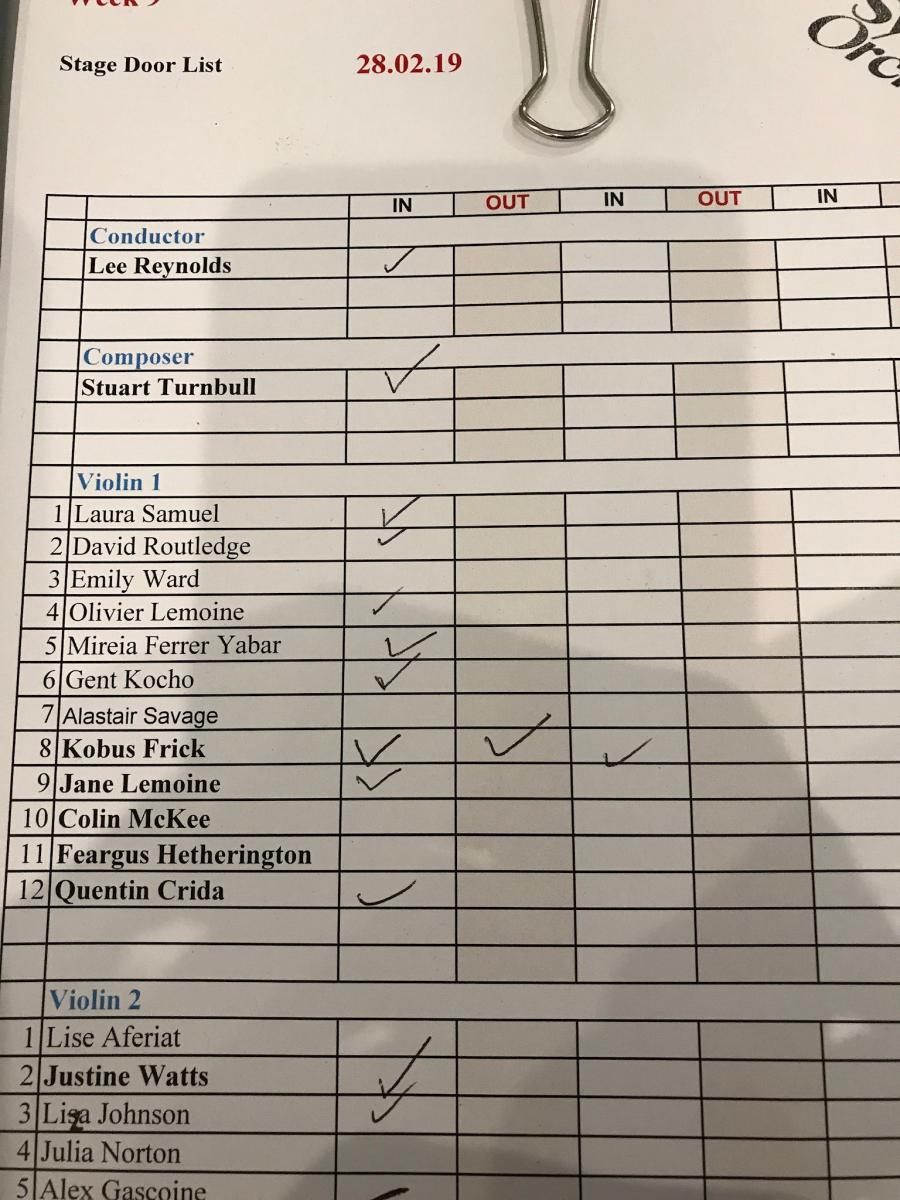 Week 9
Stage Door List 28.02.19
IN OUT IN OUT IN
Conductor
Lee Reynolds ✓
Composer
Stuart Turnbull ✓
Violin 1
1 Laura Samuel ✓
2 David Routledge ✓
3 Emily Ward
4 Olivier Lemoine ✓
5 Mireia Ferrer Yabar ✓
6 Gent Kocho ✓
7 Alastair Savage
8 Kobus Frick ✓ ✓ ✓
9 Jane Lemoine ✓
10 Colin McKee
11 Feargus Hetherington
12 Quentin Crida ✓
Violin 2
1 Lise Aferiat
2 Justine Watts ✓
3 Liza Johnson ✓
4 Julia Norton
5 Alex Gascoine